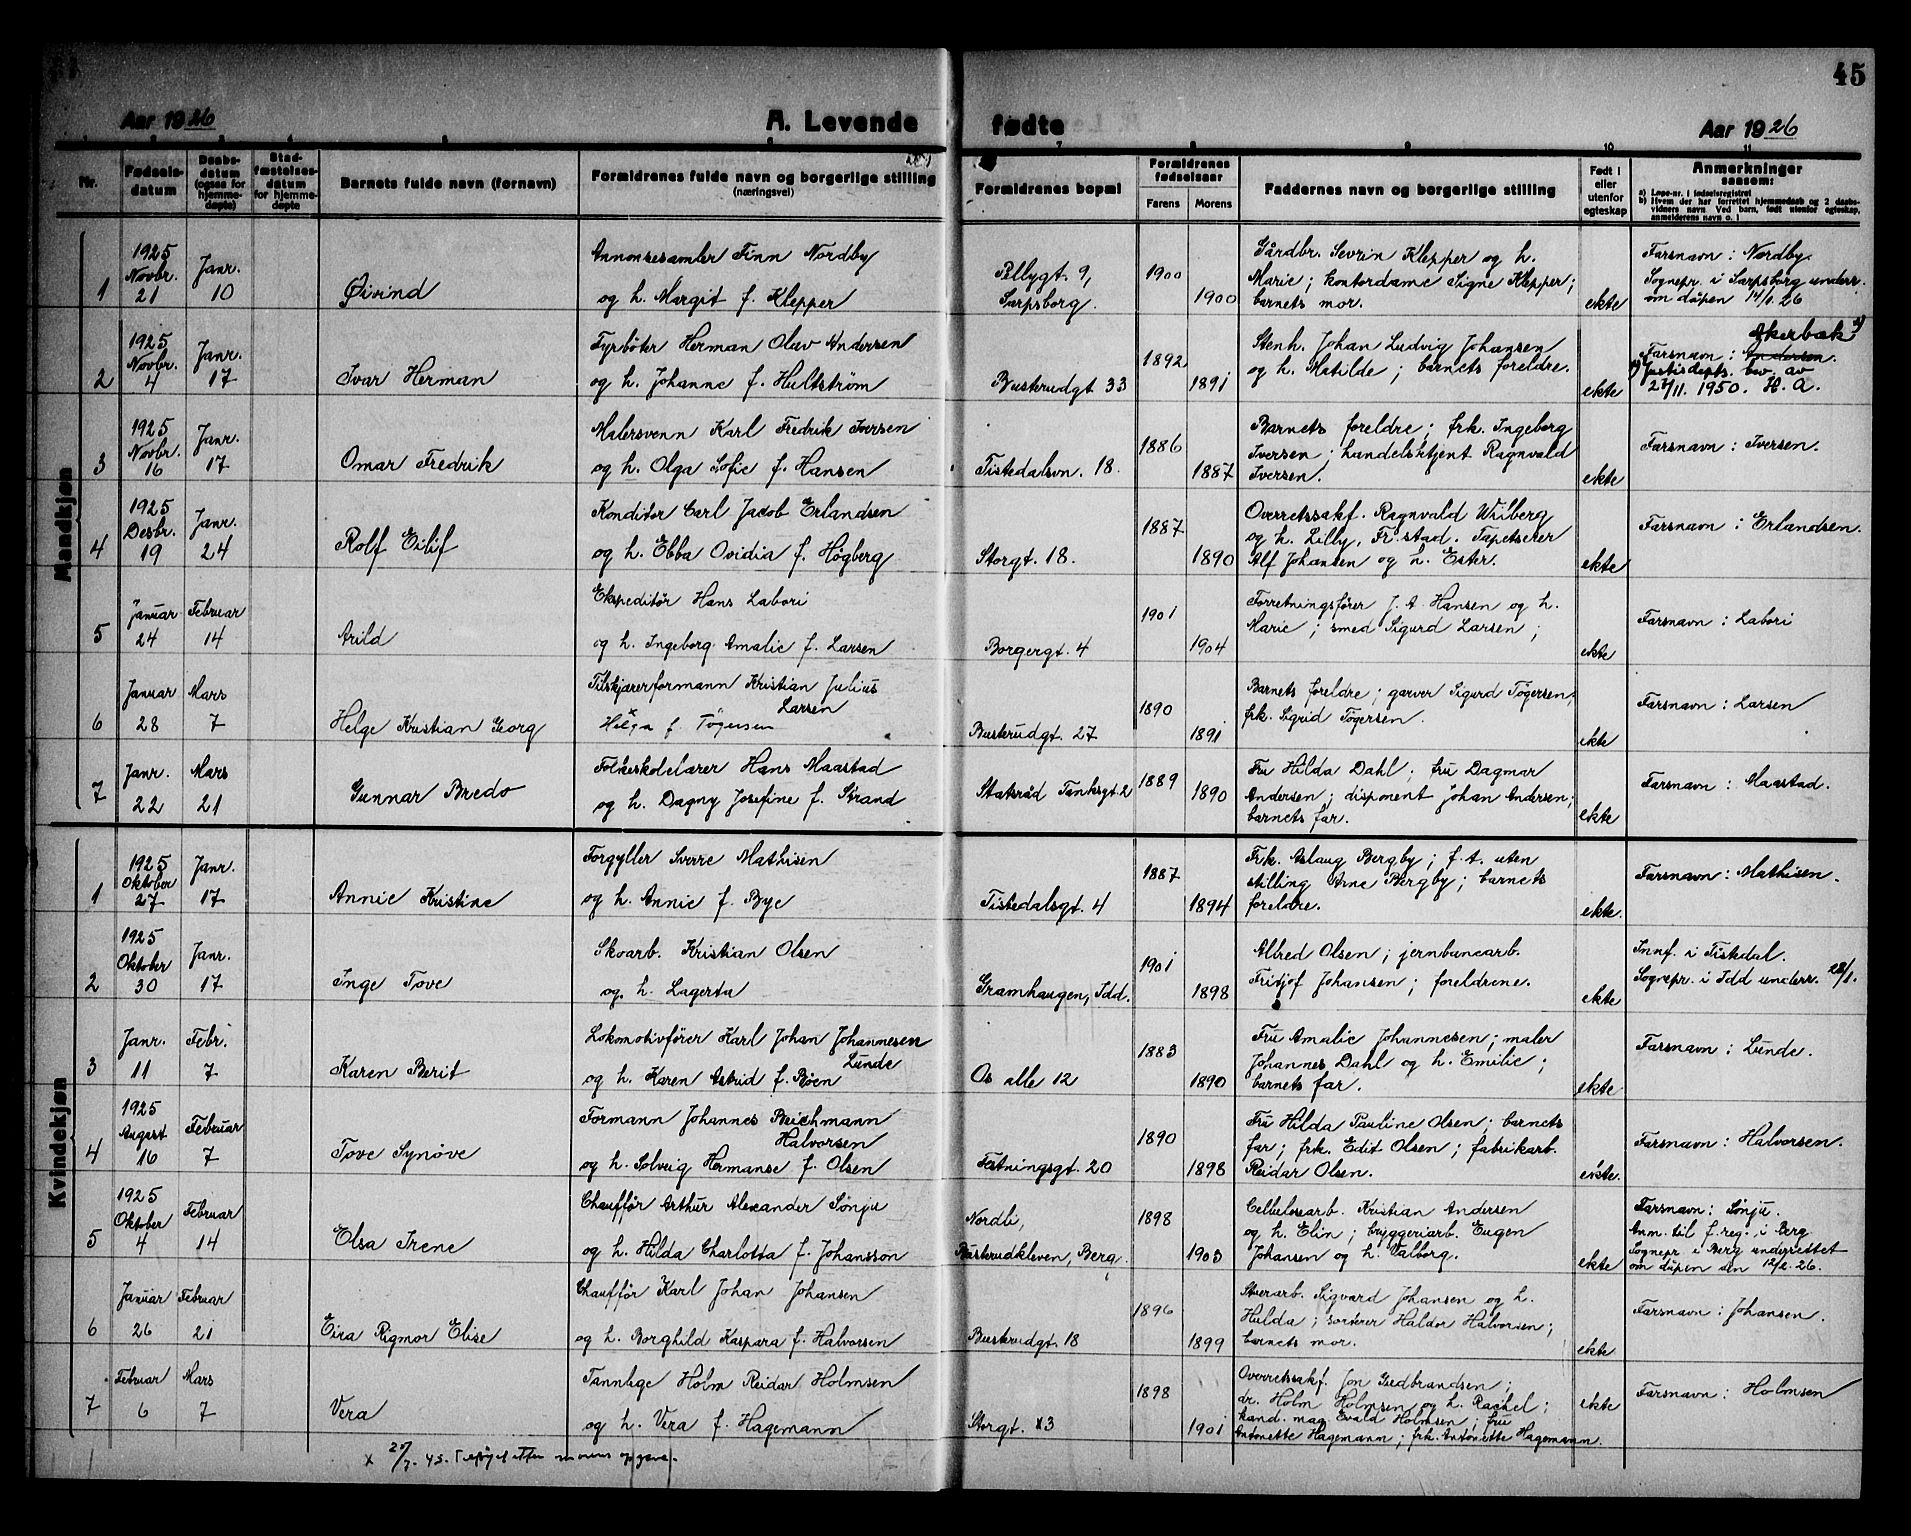 45
Aar 1926
A. Levende
fødte
Aar 1926
Nr.
Fødsels-
datum
Daabs-
datum
(ogsaa for
hjemme-
døpte)
Stad-
fæstelses-
datum
for hjemme-
døpte
Barnets fulde navn (fornavn)
Forældrenes fulde navn og borgerlige stilling
(næringsvei)
Forældrenes bopæl
Forældrenes
fødselsaar
Farens Morens
Faddernes navn og borgerlige stilling
Født i
eller
utenfor
egteskap
Anmerkninger
saasom:
a) Løpe-nr. i fødselsregistret
b) Hvem der har forrettet hjemmedaab og 2 daabs-
vidners navn. Ved barn, født utenfor egteskap,
anmelderens navn o. l
Mandkjøn
1
1925
Novbr.
21
Janr.
10
Øivind
Annonsesamler Finn Nordby
og h. Margit f. Klepper
Pellygt. 9,
Sarpsborg.
1900
1900
Gårdbr. Sevrin Klepper og h.
Marie; kontordame Signe Klepper;
barnets mor.
ekte
Farsnavn: Nordby.
Sognepr. i Sarpsborg underr.
om dåpen 14/1. 26
2
1925
Novbr.
4
Janr.
17
Ivar Herman
Fyrbøter Herman Olav Andersen
og h. Johanne f. Hultstrøm
Buskrudgt. 33
1892
1891
Stenh. Johan Ludvig Johansen
og h. Matilde; barnets foreldre.
ekte
Akerbæk x)
Farsnavn: Andersen.
x) Justisdepts. bev. av
27/11. 1950. H. A.
3
1925
Novbr.
16
Janr.
17
Omar Fredrik
Malersvenn Karl Fredrik Iversen
og h. Olga Sofie f. Hansen
Tistedalsvn. 18.
1886
1887
Barnets foreldre; frk. Ingeborg
Iversen; handelsbtjent Ragnvald
Iversen.
ekte
Farsnavn: Iversen.
4
1925
Desbr.
19
Janr.
24
Rolf Eilif
Konditor Carl Jacob Erlandsen
og h. Ebba Ovidia f. Högberg
Storgt. 18.
1887
1890
Overretssakf. Ragnvald Wiiberg
og h. Lilly, Fr.stad. Tapetserer
Alf Johansen og h. Ester.
ekte
Farsnavn: Erlandsen.
5
Januar
24
Februar
14
Arild
Ekspeditør Hans Labori
og h. Ingeborg Amalie f. Larsen
Borgergt. 4
1901
1904
Forretningsfører J. A. Hansen og h.
Marie; smed Sigurd Larsen;
ekte
Farsnavn: Labori
6
Januar
28
Mars
7
Helge Kristian Georg
Tilskjærerformann Kristian Julius
Larsen
x
Helga f. Tøgersen
Buskrudgt. 27
1890
1891
Barnets foreldre; garver Sigurd Tøgersen,
frk. Sigrid Tøgersen.
ekte
Farsnavn: Larsen
7
Janr.
22
Mars
21
Gunnar Bredo
Folkeskolelærer Hans Maastad
og h. Dagny Josefine f. Strand
Statsråd Tanksgt. 2
1889
1890
Fru Hilda Dahl; fru Dagmar
Andersen; disponent Johan Andersen;
barnets far.
ekte
Farsnavn: Maastad.
Kvindekjøn
1
1925
Oktober
27
Janr.
17
Annie Kristine
Forgyller Sverre Mathisen
og h. Annie f. Bye
Tistedalsgt. 4
1887
1894
Frk. Aslaug Bergby; f.t. uten
stilling Arne Bergby; barnets
foreldre.
ekte.
Farsnavn: Mathisen.
2
1925
Oktober
30
Janr.
17
Inge Tove
Skoarb. Kristian Olsen
og. h. Lagerta
Gramhaugen, Idd.
1901
1898
Alfred Olsen; jernbanearb.
Fritjof Johansen; foreldrene.
ekte
Innf. i Tistedal.
Sognepr. i Idd underr. 28/1.
3
Janr.
11
Febr.
7
Karen Berit
Lokomotivfører Karl Johan Johannesen
Lunde
og h. Karen Astrid f. Bøen
Os alle 12
1883
1890
Fru Amalie Johannesen; maler
Johannes Dahl og h. Emilie;
barnets far.
ekte
Farsnavn: Lunde.
4
1925
August
16
Februar
7
Tove Synøve
Formann Johannes Beichmann
Halvorsen
og h. Solveig Hermanse f. Olsen
Festningsgt. 20
1890
1898
Fru Hilda Pauline Olsen; barnets
far; frk. Edit Olsen; fabrikarb.
Reidar Olsen.
ekte.
Farsnavn: Halvorsen.
5
1925
Oktober
4
Februar
14
Elsa Irene
Chauffør Arthur Alexander Sønju
og h. Hilda Charlotta f. Johansson
Nordli,
Buskrudkleven, Berg.
1898
1903
Cellulosearb. Kristian Andersen
og h. Elin; bryggeriarb. Eugen
Johansen og h. Valborg.
ekte
Farsnavn: Sønju.
Anm. til f. reg. i Berg
Sognepr i Berg underrettet
om dåpen den 12/2. 26.
6
Januar
26
Februar
21
Eira Rigmor Elise
Chauffør Karl Johan Johansen
og h. Borghild Kaspara f. Halvorsen
Buskrudgt. 18
1896
1899
Stuerarb. Sigvard Johansen og h.
Hulda; sorterer Haldor Halvorsen;
barnets mor.
ekte
Farsnavn: Johansen.
7
Februar
6
Mars
7
Vera
Tannlege Holm Reidar Holmsen
og h. Vera f. Hagemann
Storgt. 3
1898
1901
Overretssakf. Jon Gudbrandsen;
dr. Holm Holmsen og h. Rachel;
kand. mag. Evald Holmsen; fru
Antonette Hagemann; frk. Antonette Hagemann.
ekte
Farsnavn: Holmsen
x 20/7. 45. Tilføyet etter morens opgave.